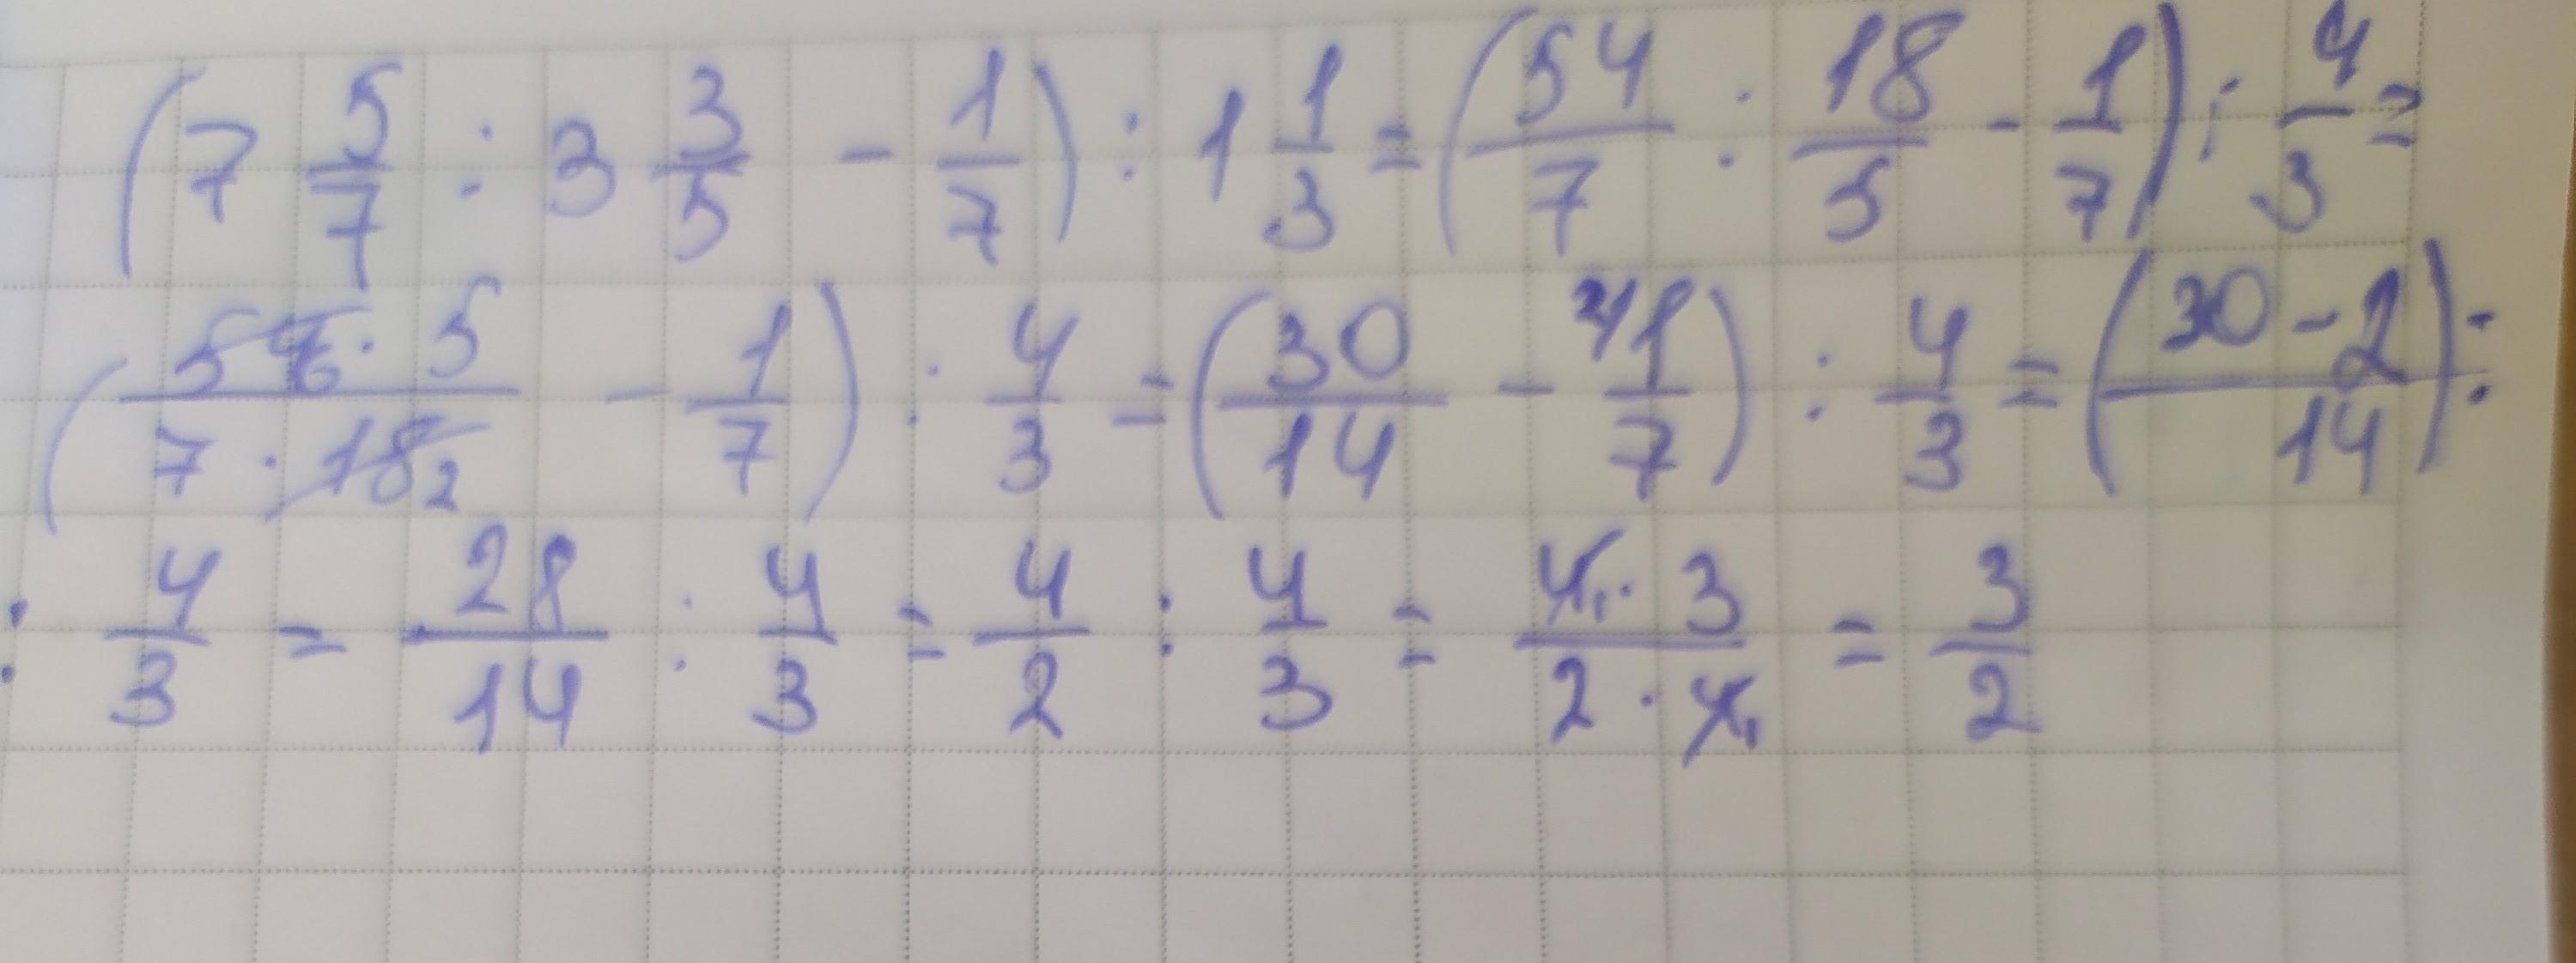 (7 5/7 : 3 3/5 - 1/7) : 1 1/3 = (54/7 : 18/5 - 1/7) : 4/3 =
(54 6 · 5 / 7 · 18 2 - 1/7) : 4/3 = (30/14 - 2\ 1/7) : 4/3 = (30 - 2 / 14) :
: 4/3 = 28/14 : 4/3 = 4/2 : 4/3 = 4 1 · 3 / 2 · 4 1 = 3/2